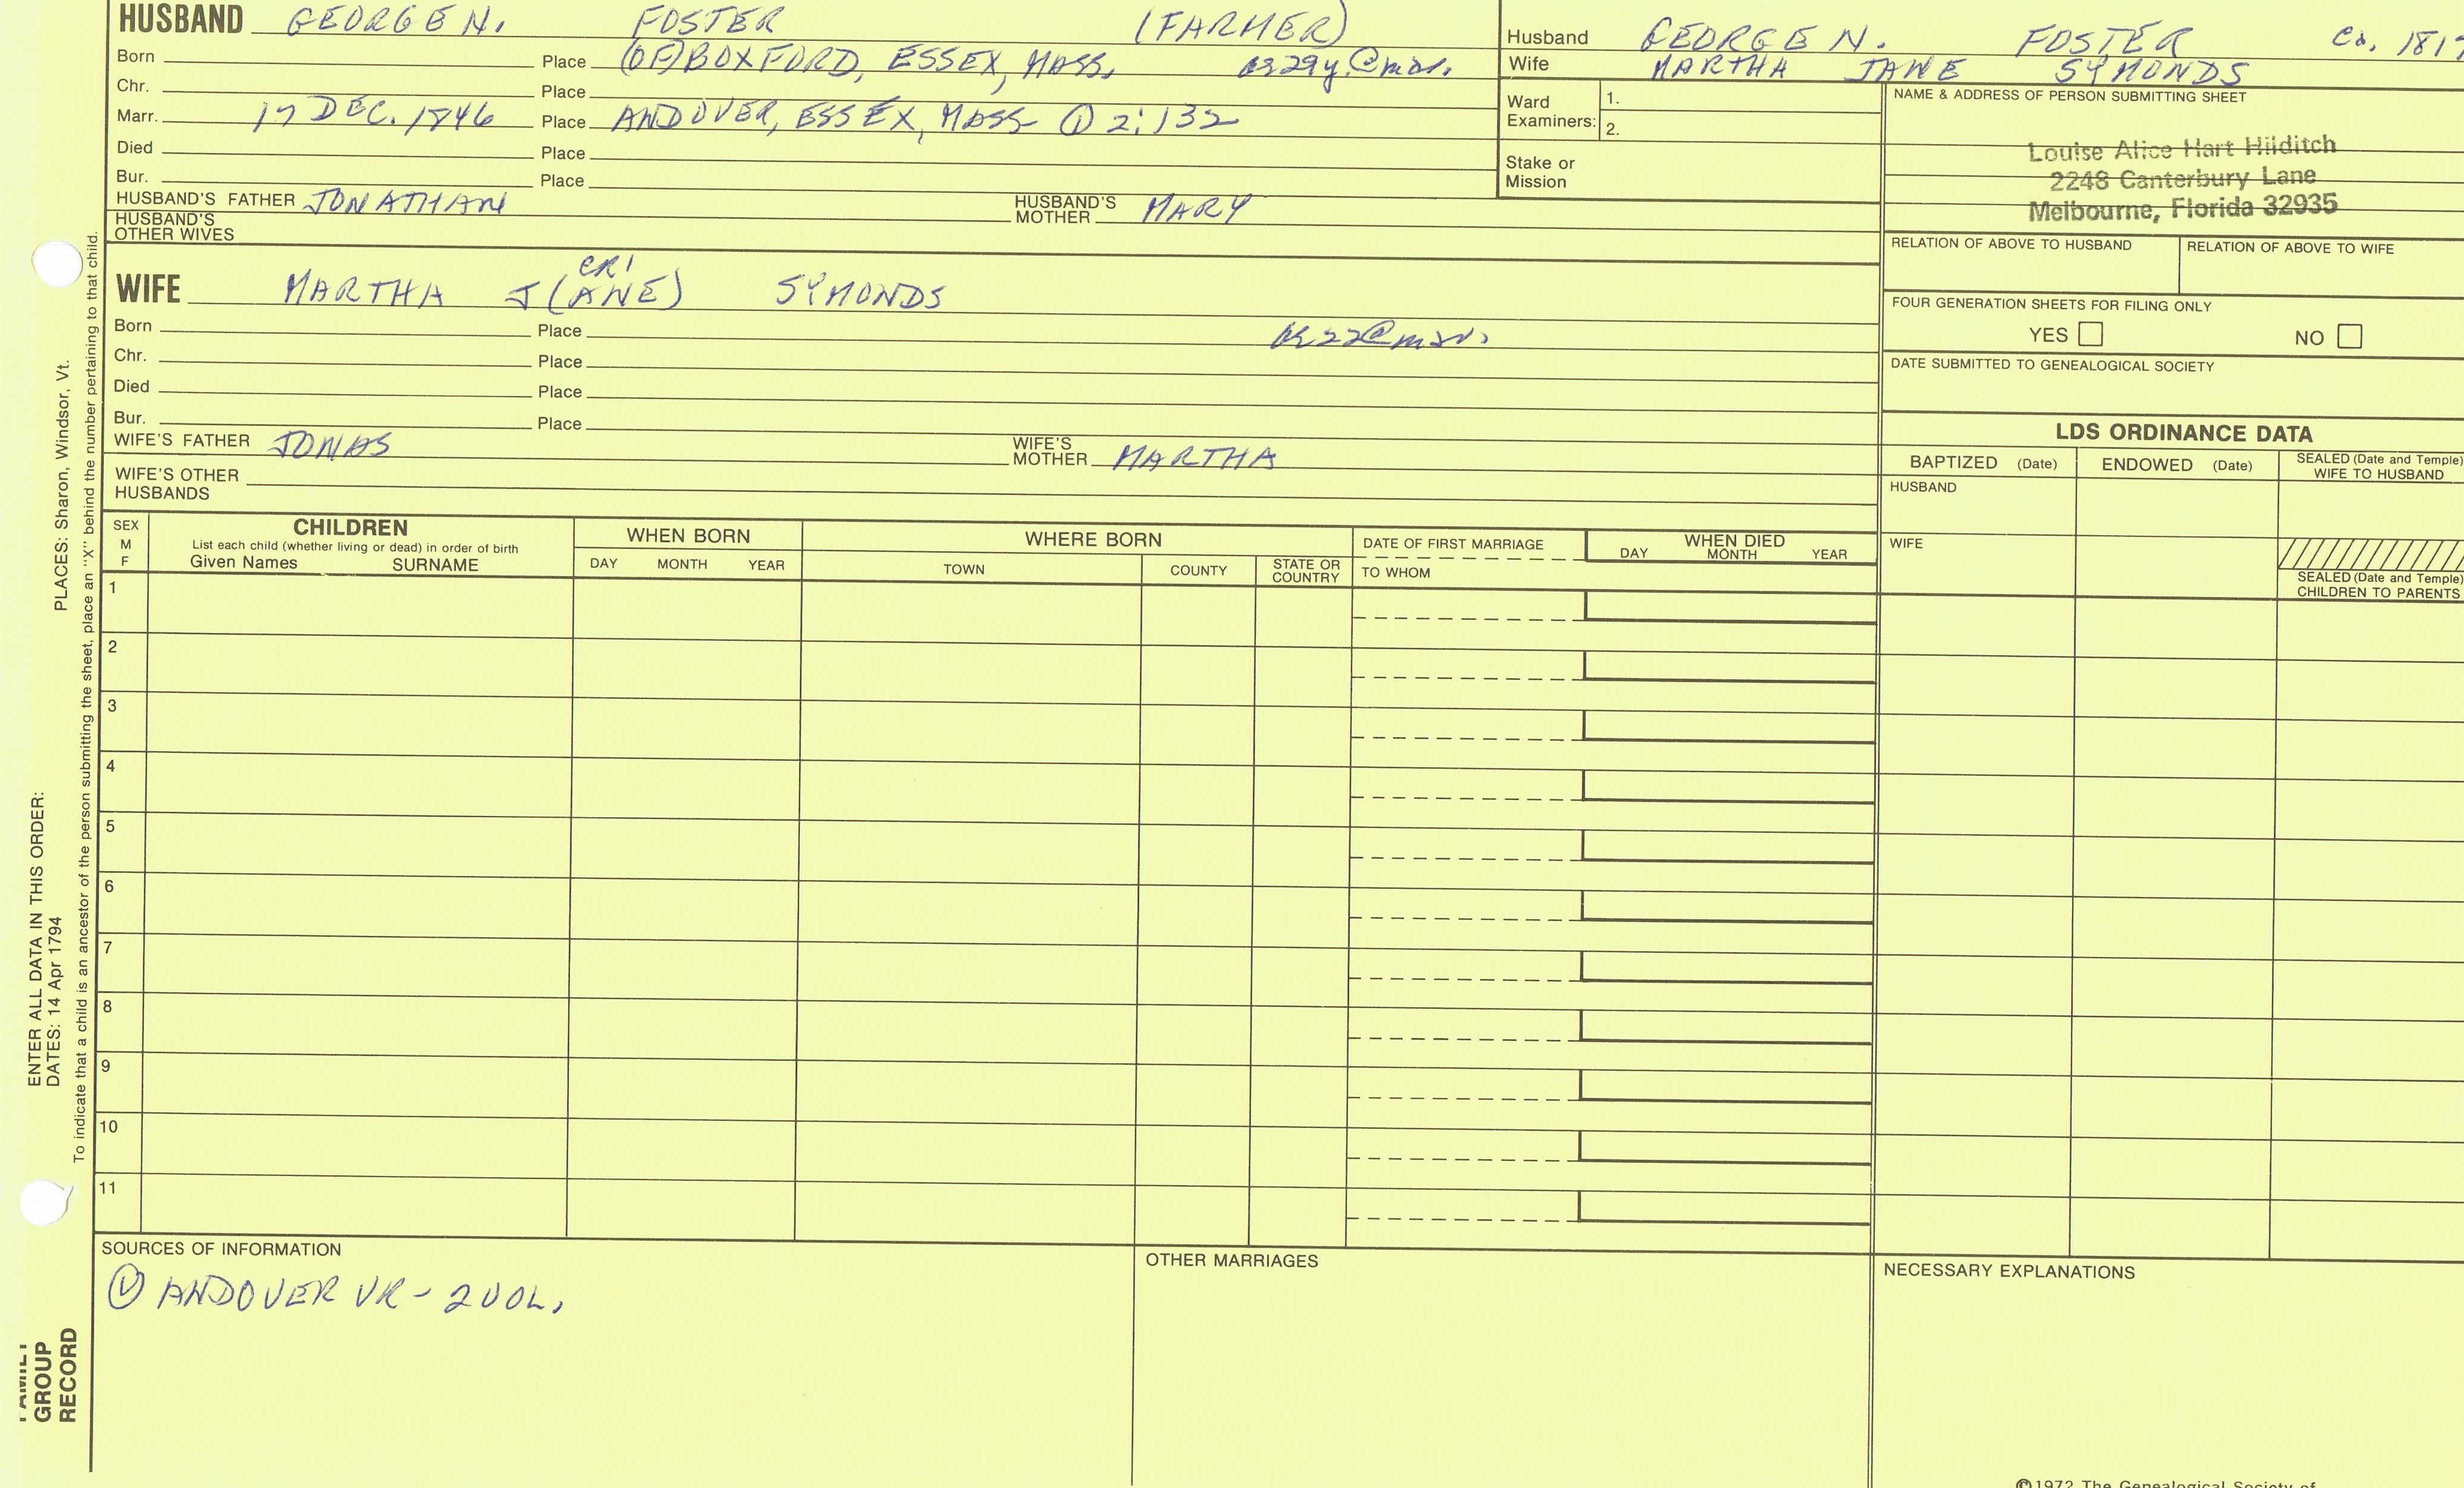 HUSBAND GEORGE N. FOSTER (FARMER)
Born Place (OF) BOXFORD, ESSEX, MASS. 29y. @ mar.
Chr. Place
Marr. 17 DEC. 1846 Place ANDOVER, ESSEX, MASS ① 2:132
Died Place
Bur. Place
HUSBAND'S FATHER JONATHAN HUSBAND'S MOTHER MARY
HUSBAND'S OTHER WIVES
Husband GEORGE N. FOSTER Ca. 181
Wife MARTHA JANE SYMONDS
Ward Examiners: 1.
2.
Stake or Mission
NAME & ADDRESS OF PERSON SUBMITTING SHEET
Louise Alice Hart Hilditch
2248 Canterbury Lane
Melbourne, Florida 32935
RELATION OF ABOVE TO HUSBAND RELATION OF ABOVE TO WIFE
FOUR GENERATION SHEETS FOR FILING ONLY
YES NO
DATE SUBMITTED TO GENEALOGICAL SOCIETY
CR1
WIFE MARTHA J(ANE) SYMONDS
Born Place 22 @ mar.
Chr. Place
Died Place
Bur. Place
WIFE'S FATHER JONAS WIFE'S MOTHER MARTHA
WIFE'S OTHER HUSBANDS
LDS ORDINANCE DATA
BAPTIZED (Date) ENDOWED (Date) SEALED (Date and Temple) WIFE TO HUSBAND
HUSBAND
WIFE
SEALED (Date and Temple) CHILDREN TO PARENTS
SEX M F
CHILDREN
List each child (whether living or dead) in order of birth
Given Names SURNAME
WHEN BORN
DAY MONTH YEAR
WHERE BORN
TOWN COUNTY STATE OR COUNTRY
DATE OF FIRST MARRIAGE
TO WHOM
WHEN DIED
DAY MONTH YEAR
1
2
3
4
5
6
7
8
9
10
11
SOURCES OF INFORMATION
ANDOVER VR - 2 VOL.
OTHER MARRIAGES
NECESSARY EXPLANATIONS
©1972 The Genealogical Society of
FAMILY GROUP RECORD
ENTER ALL DATA IN THIS ORDER:
DATES: 14 Apr 1794 PLACES: Sharon, Windsor, Vt.
To indicate that a child is an ancestor of the person submitting the sheet, place an "X" behind the number pertaining to that child.